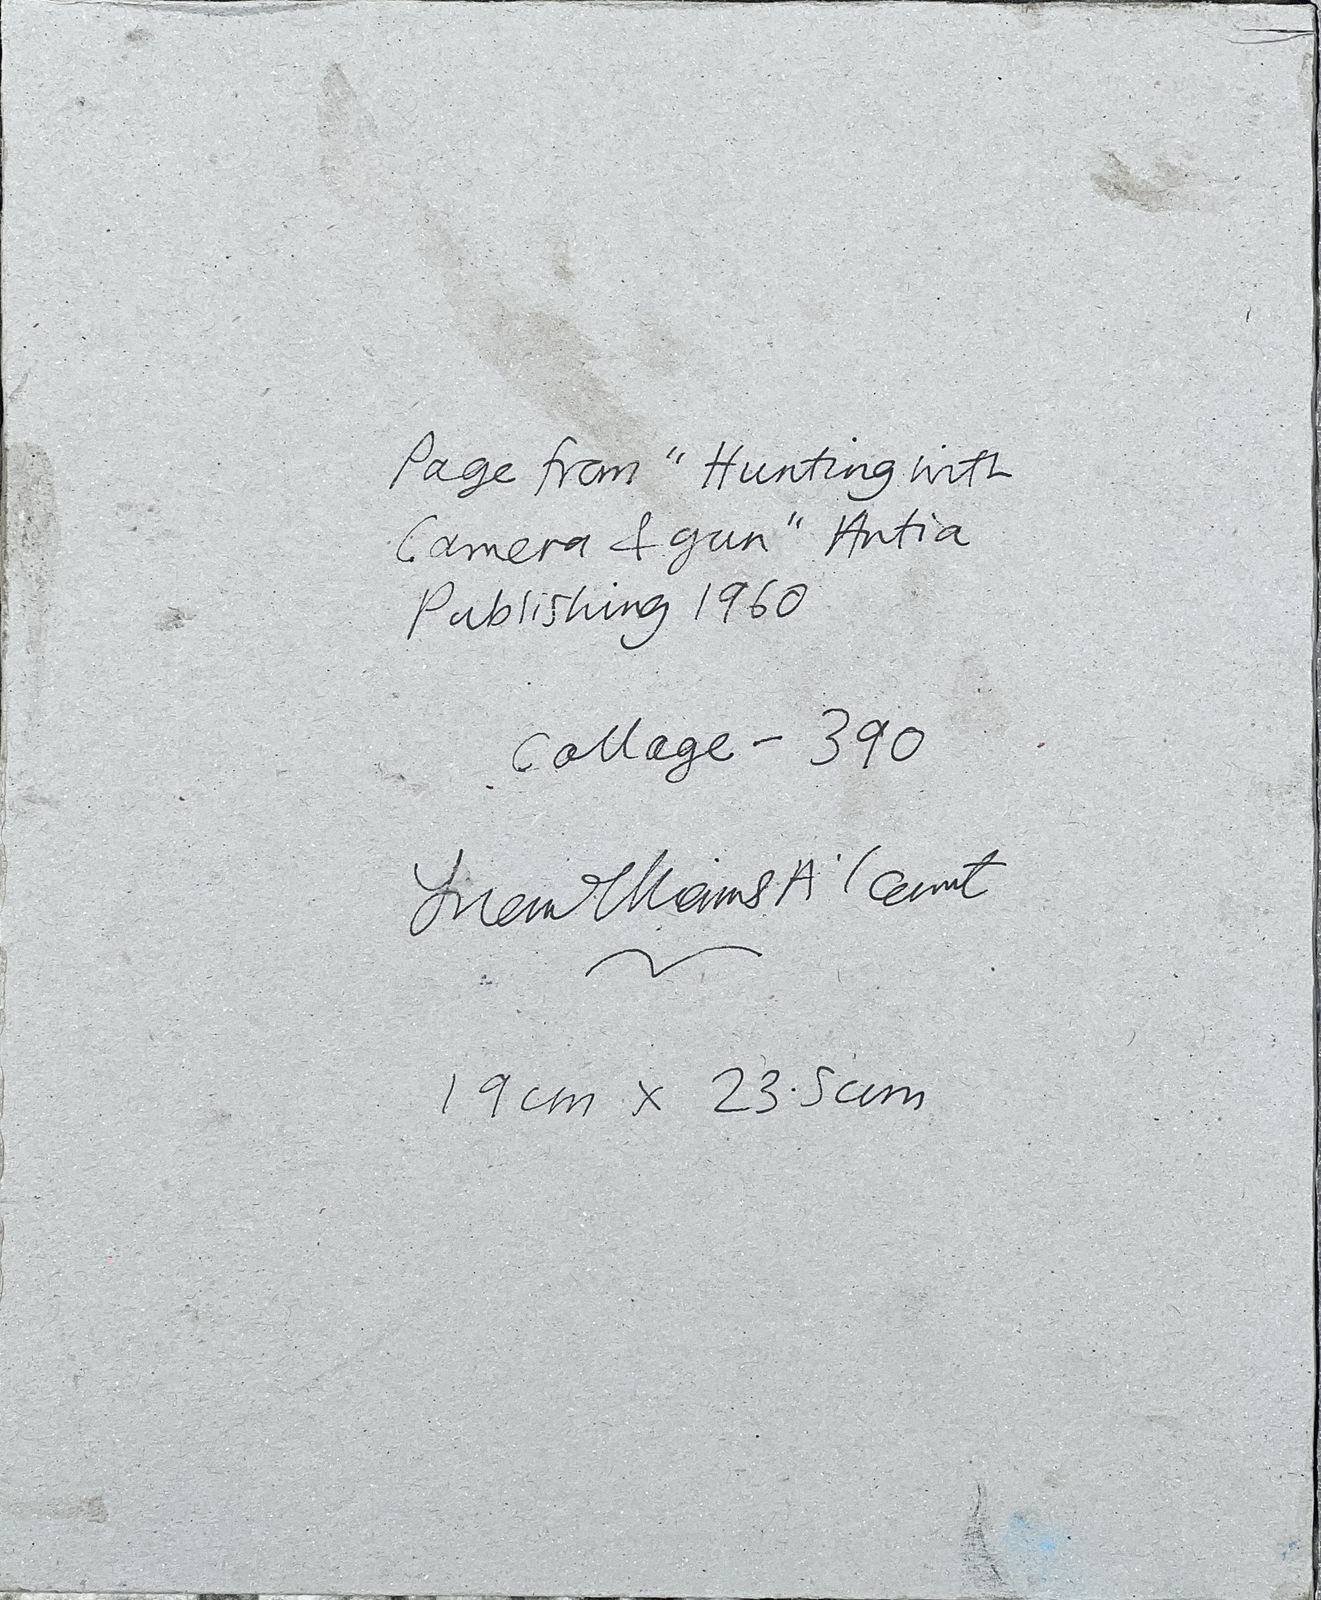 Page from "Hunting with
Camera & gun" Antia
Publishing 1960
Collage - 390
19cm x 23.5cm